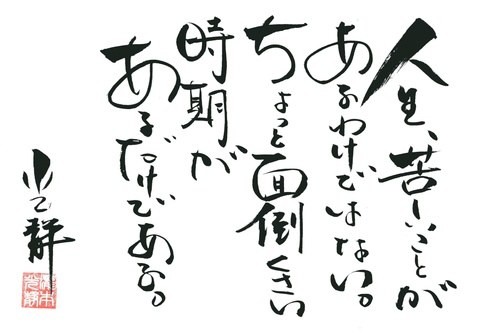 人生、苦しいことが
あるわけではない。
ちょっと面倒くさい
時期が
あるだけである。